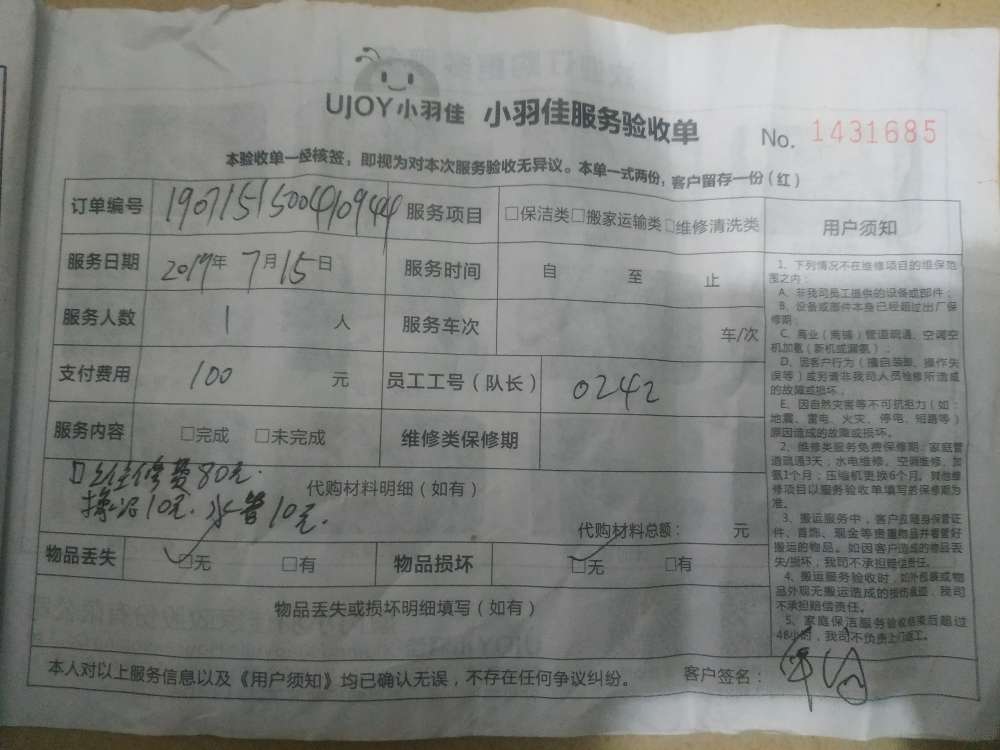 UJOY小羽佳 小羽佳服务验收单 No. 1431685
本验收单一经核签，即视为对本次服务验收无异议。本单一式两份，客户留存一份（红）
订单编号 服务项目 □保洁类□搬家运输类□维修清洗类
服务日期 2019年7月15日 服务时间 自 至 止
服务人数 1 人 服务车次 车/次
支付费用 100 元 员工工号（队长） 0242
服务内容 □完成 □未完成 维修类保修期
维修费80元.
代购材料明细（如有）
10元. 水管10元.
代购材料总额： 元
物品丢失 □无 □有 物品损坏 □无 □有
物品丢失或损坏明细填写（如有）
本人对以上服务信息以及《用户须知》均已确认无误，不存在任何争议纠纷。 客户签名：
用户须知
1、下列情况不在维修项目的维保范
围之内：
A、非我司员工提供的设备或部件；
B、设备或部件本身已经超过出厂保
修期；
C、商业（商铺）管道疏通、空调空
机加氨（新机或漏氨）；
D、因客户行为（擅自装卸、操作失
误等）或另请非我司人员检修所造成
的故障或损坏；
E、因自然灾害等不可抗拒力（如：
地震、雷电、火灾、停电、短路等）
原因造成的故障或损坏。
2、维修类服务免费保修期：家庭管
道疏通3天；水电维修、空调维修、加
氨1个月；压缩机更换6个月。其他维
修项目以服务验收单填写的保修期为
准。
3、搬运服务中，客户应随身保管证
件、首饰、现金等贵重物品并看管好
搬运的物品。如因客户造成的物品丢
失/损坏，我司不承担赔偿责任。
4、搬运服务验收时，如外包装或物
品外观无搬运造成的损伤痕迹，我司
不承担赔偿责任。
5、家庭保洁服务验收结束后超过
48小时，我司不负责上门返工。